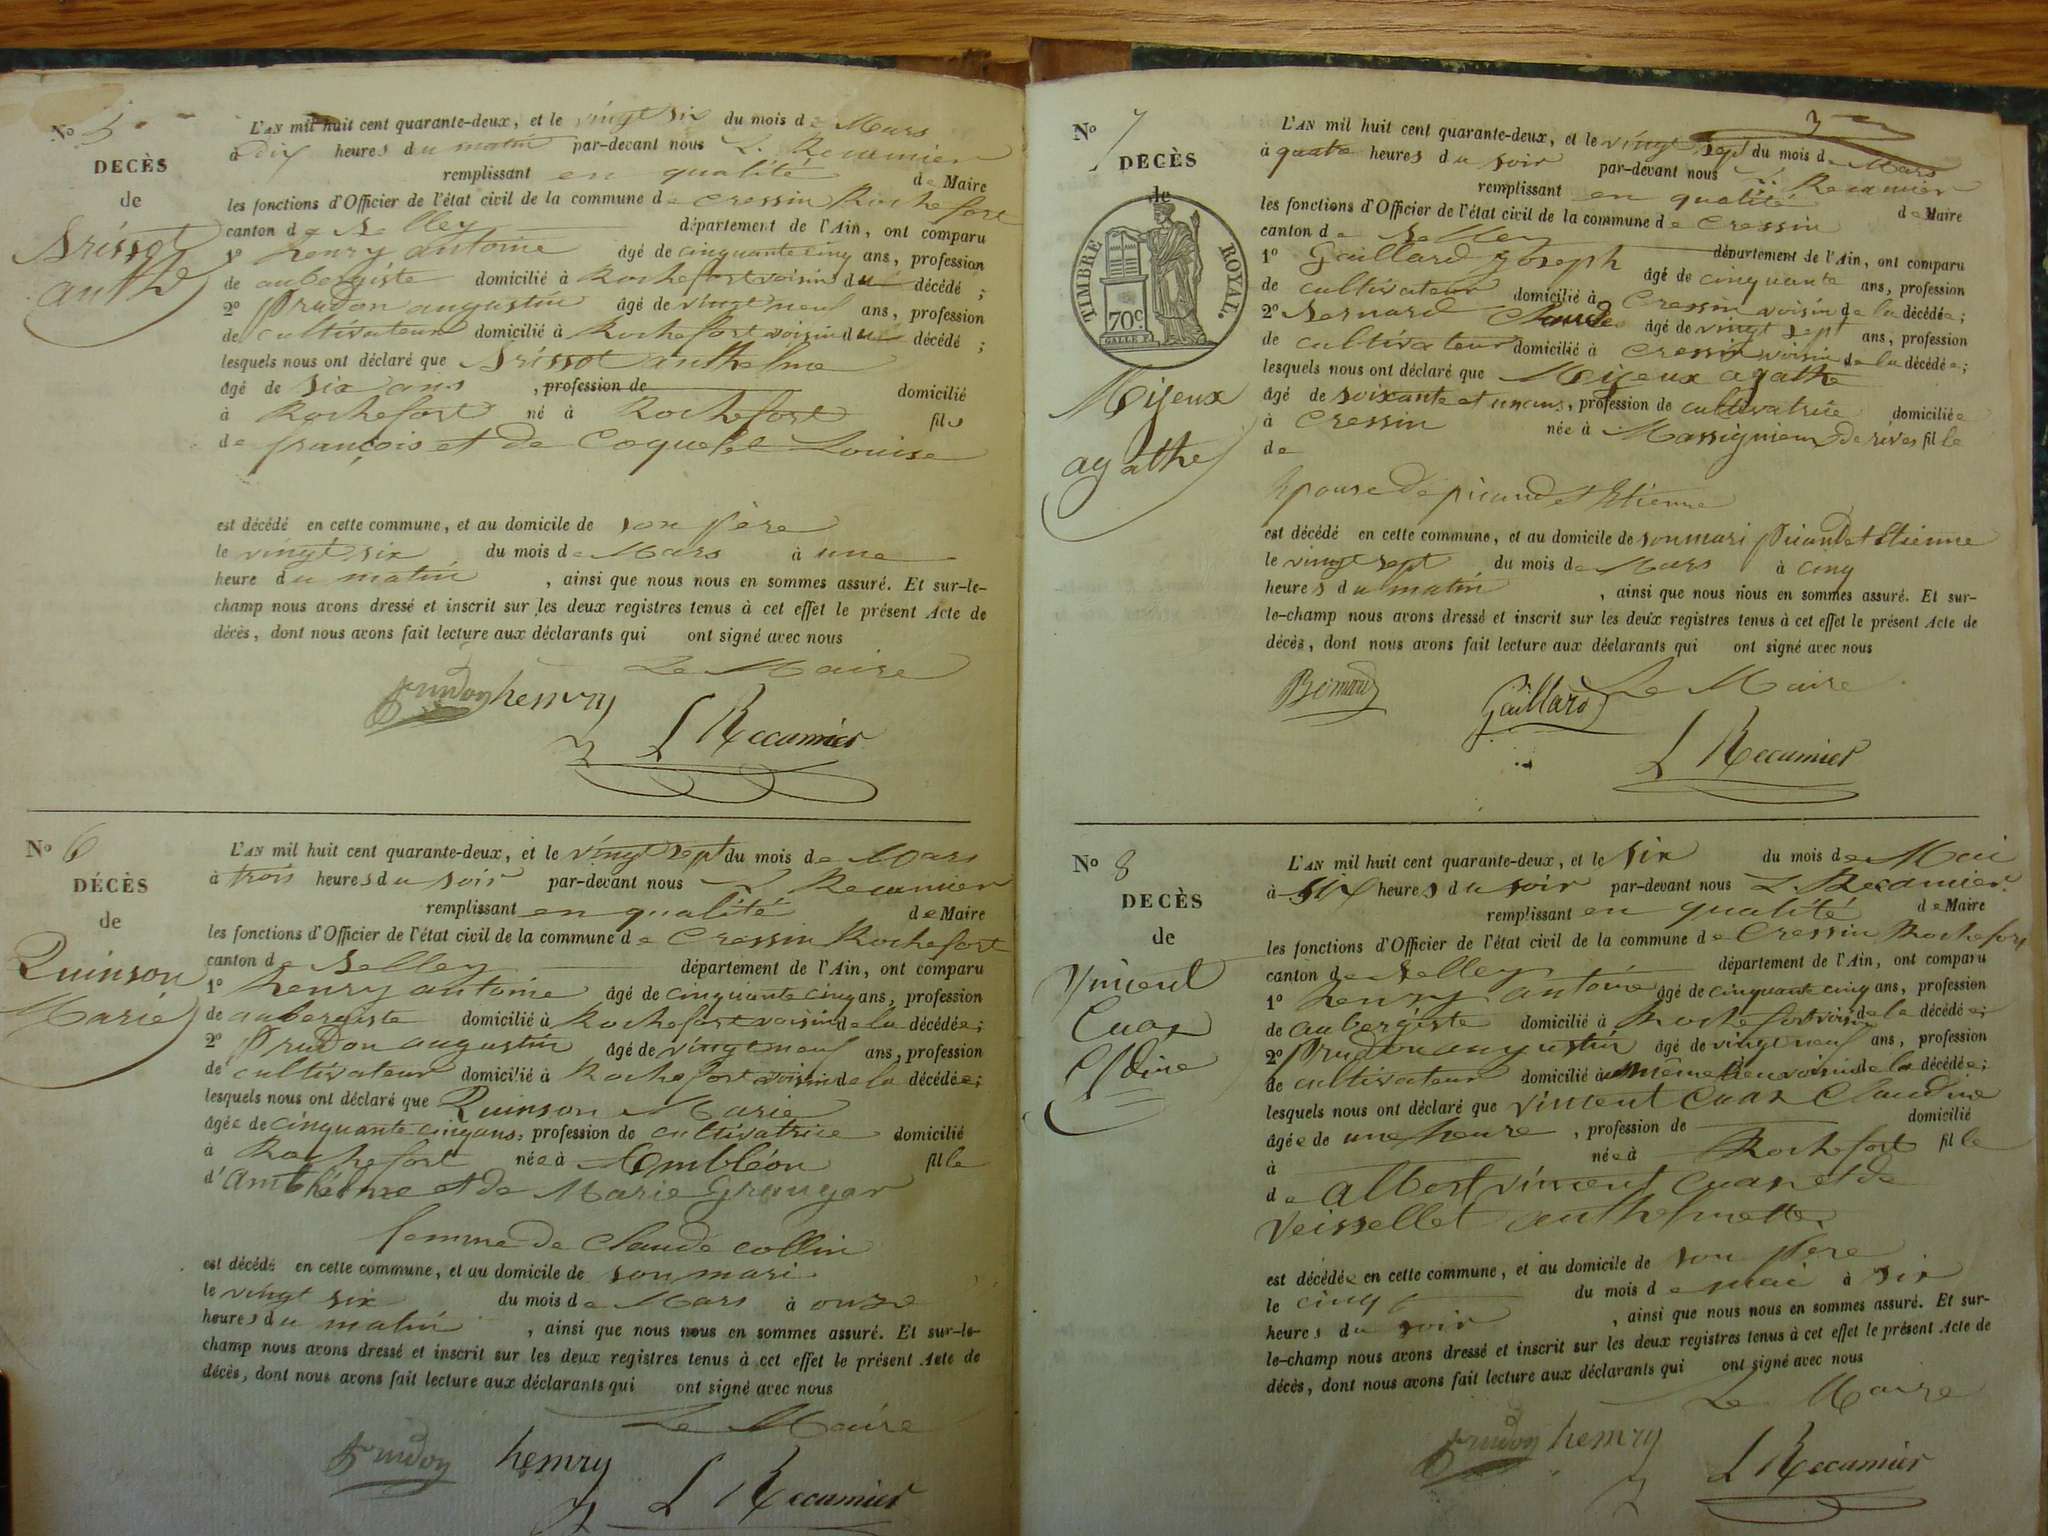 No 5
DECÈS
de
Brissot
anthe
L'AN mil huit cent quarante-deux, et le vingt six du mois de Mars
à dix heures du matin par-devant nous L. Recamier
remplissant en qualité de Maire
les fonctions d'Officier de l'état civil de la commune de Cressin Rochefort
canton de Belley département de l'Ain, ont comparu
1º henry antoine âgé de cinquante cinq ans, profession
de aubergiste domicilié à Rochefort voisin du décédé ;
2º Prudon augustin âgé de vingt neuf ans, profession
de cultivateur domicilié à Rochefort voisin du décédé ;
lesquels nous ont déclaré que Brissot anthelme
âgé de six ans , profession de domicilié
à Rochefort né à Rochefort fils
de françois et de Coquelet Louise
est décédé en cette commune, et au domicile de son père
le vingt six du mois de Mars à une
heure du matin , ainsi que nous nous en sommes assuré. Et sur-le-
champ nous avons dressé et inscrit sur les deux registres tenus à cet effet le présent Acte de
décès, dont nous avons fait lecture aux déclarants qui ont signé avec nous
Le Maire
Prudon henry
L Recamier
No 6
DÉCÈS
de
Quinson
Marie
L'AN mil huit cent quarante-deux, et le vingt sept du mois de Mars
à trois heures du soir par-devant nous L Recamier
remplissant en qualité de Maire
les fonctions d'Officier de l'état civil de la commune de Cressin Rochefort
canton de Belley département de l'Ain, ont comparu
1º henry antoine âgé de cinquante cinq ans, profession
de aubergiste domicilié à Rochefort voisin de la décédée ;
2º Prudon augustin âgé de vingt neuf ans, profession
de cultivateur domicilié à Rochefort voisin de la décédée ;
lesquels nous ont déclaré que Quinson Marie
âgée de cinquante cinq ans, profession de cultivatrice domicilié
à Rochefort née à Ambléon fille
d'Anthelme et de Marie
femme de Claude Collin
est décédé en cette commune, et au domicile de son mari
le vingt six du mois de Mars à onze
heures du matin , ainsi que nous nous en sommes assuré. Et sur-le-
champ nous avons dressé et inscrit sur les deux registres tenus à cet effet le présent Acte de
décès, dont nous avons fait lecture aux déclarants qui ont signé avec nous
Le Maire
Prudon henry
L Recamier
3
No 7
DECÈS
de
TIMBRE ROYAL.
70c
GALLE F.
Mijeux
agathe
L'AN mil huit cent quarante-deux, et le vingt sept du mois de Mars
à quatre heures du soir par-devant nous L Recamier
remplissant en qualité de Maire
les fonctions d'Officier de l'état civil de la commune de Cressin
canton de Belley département de l'Ain, ont comparu
1º Gaillard Joseph âgé de cinquante ans, profession
de cultivateur domicilié à Cressin voisin de la décédée ;
2º Bernard Claude âgé de vingt sept ans, profession
de cultivateur domicilié à Cressin voisin de la décédée ;
lesquels nous ont déclaré que Mijeux agathe
âgé de soixante et un ans, profession de cultivatrice domiciliée
à Cressin née à Massignieux de rives fille
de
Epouse de picandet Etienne
est décédé en cette commune, et au domicile de son mari Picandet Etienne
le vingt sept du mois de Mars à cinq
heures du matin , ainsi que nous nous en sommes assuré. Et sur-
le-champ nous avons dressé et inscrit sur les deux registres tenus à cet effet le présent Acte de
décès, dont nous avons fait lecture aux déclarants qui ont signé avec nous
Bernard Gaillard Le Maire
L Recamier
No 8
DECÈS
de
Vincent
Cuaz
Cldine
L'AN mil huit cent quarante-deux, et le six du mois de Mai
à six heures du soir par-devant nous L. Recamier
remplissant en qualité de Maire
les fonctions d'Officier de l'état civil de la commune de Cressin Rochefort
canton de Belley département de l'Ain, ont comparu
1º henry antoine âgé de cinquante cinq ans, profession
de aubergiste domicilié à Rochefort voisin de la décédée ;
2º Prudon augustin âgé de vingt neuf ans, profession
de cultivateur domicilié à même lieu voisin de la décédée ;
lesquels nous ont déclaré que Vincent Cuaz Claudine
âgée de une heure , profession de domicilié
à née à Rochefort fille
de Albert Vincent Cuaz et de
Veissellet anthelmette
est décédée en cette commune, et au domicile de son Père
le cinq du mois de mai à six
heures du soir , ainsi que nous nous en sommes assuré. Et sur-
le-champ nous avons dressé et inscrit sur les deux registres tenus à cet effet le présent Acte de
décès, dont nous avons fait lecture aux déclarants qui ont signé avec nous
Le Maire
Prudon henry
L Recamier